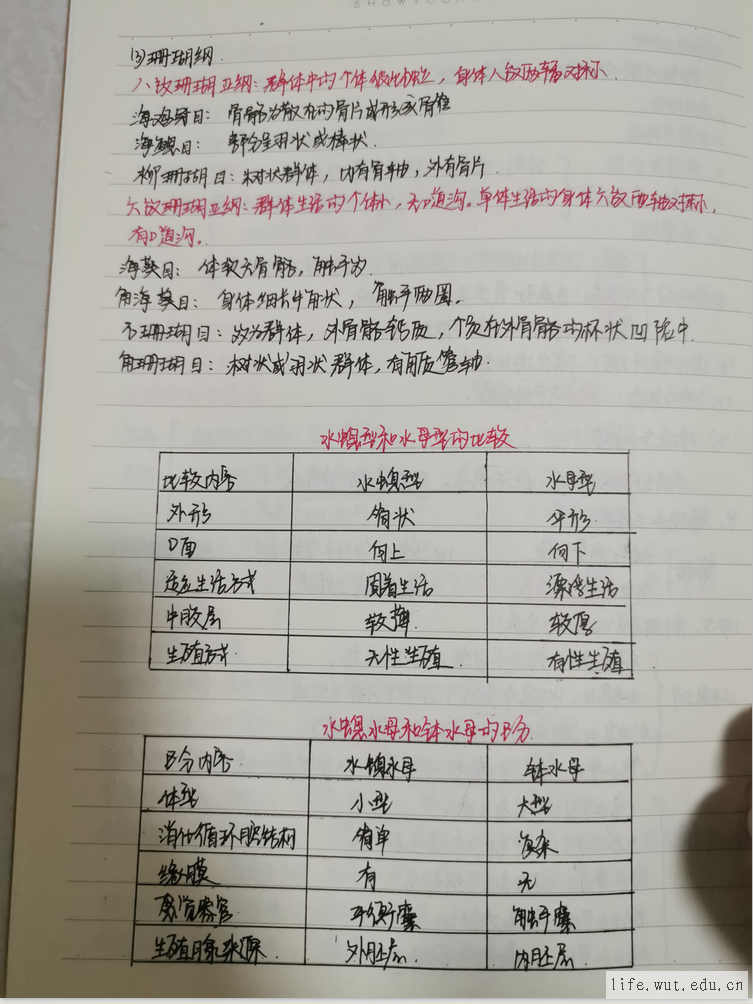 (3)珊瑚纲
八放珊瑚亚纲:群体中的个体彼此独立,身体八放两辐对称.
海鸡冠目:骨骼为散在的骨片或形成骨锥
海鳃目:部分呈羽状或棒状.
柳珊瑚目:树状群体,内有骨轴,外有骨片
六放珊瑚亚纲:群体生活的个体小,无口道沟。单体生活的身体六放两轴对称,
有口道沟。
海葵目:体软无骨骼,触手为
角海葵目:身体细长牛角状,触手两圈.
石珊瑚目:多为群体,外骨骼钙质,个员在外骨骼的杯状凹陷中.
角珊瑚目:树状或羽状群体,有角质管轴.
水螅型和水母型的比较
比较内容 水螅型 水母型
外形 筒状 伞形
口面 向上 向下
适应生活方式 固着生活 漂浮生活
中胶层 较薄 较厚
生殖方式 无性生殖 有性生殖
水螅水母和钵水母的区分
区分内容 水螅水母 钵水母
体型 小型 大型
消化循环腔结构 简单 复杂
缘膜 有 无
感觉器官 平衡囊 触手囊
生殖腺来源 外胚层 内胚层
life.wut.edu.cn